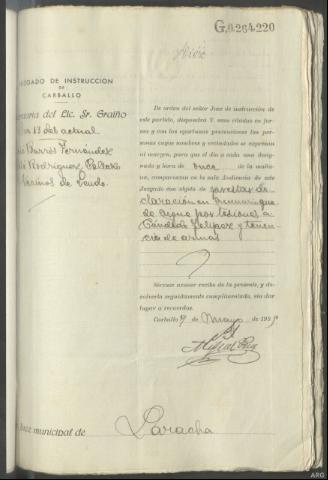 G,0.264.220
JUZGADO DE INSTRUCCIÓN
DE
CARBALLO
Secretaría del Lic. Sr. Graiño
13 del actual
Barrós Fernández
Rodríguez,
vecinos de
De orden del señor Juez de instrucción de
este partido, dispondrá V. sean citadas en for-
ma y con las oportunas prevenciones las per-
sonas cuyos nombres y vecindades se expresan
al margen, para que el día a cada una desig-
nado y hora de once de la maña-
na, comparezcan en la sala Audiencia de este
Juzgado con objeto de prestar de-
claración en sumario que
se sigue por lesiones a
Cándido y tenen-
cia de armas
Sírvase acusar recibo de la presente, y de-
volverla seguidamente cumplimentada, sin dar
lugar a recuerdos.
Carballo 9 de Mayo de 193
Juez municipal de Laracha
ARG